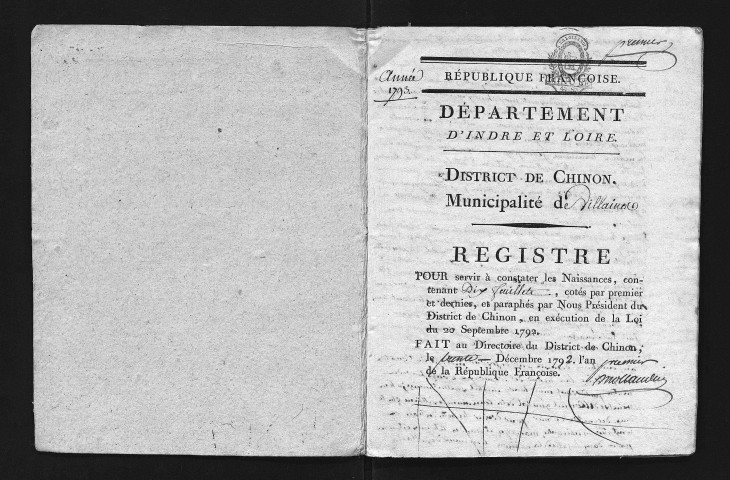 premier
Année
1793.
RÉPUBLIQUE FRANÇOISE.
DÉPARTEMENT
D'INDRE ET LOIRE.
DISTRICT DE CHINON.
Municipalité de Villaines
REGISTRE
POUR servir à constater les Naissances, con-
tenant Dix feuillets, cotés par premier
et dernier, et paraphés par Nous Président du
District de Chinon, en exécution de la Loi
du 20 Septembre 1792.
FAIT au Directoire du District de Chinon,
le trente Décembre 1792. l'an premier
de la République Françoise.